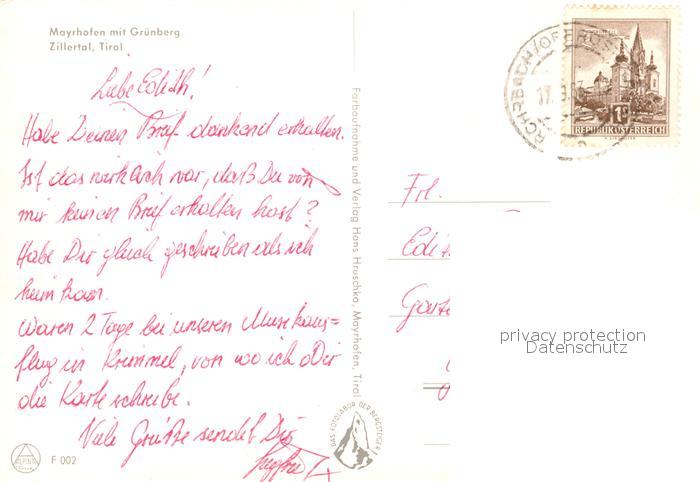 Mayrhofen mit Grünberg
Zillertal, Tirol
Liebe Edith!
Habe Deinen Brief dankend erhalten.
Ist das wirklich war, daß Du von
mir keinen Brief erhalten hast?
Habe Dir gleich geschrieben als ich
heim kam.
Waren 2 Tage bei unseren Musikaus=
flug in Krimmel, von wo ich Dir
die Karte schreibe.
Viele Grüße sendet Dir
F 002
Farbaufnahme und Verlag Hans Hruschka, Mayrhofen, Tirol
DAS FOTOLABOR DER BERGSTEIGER
ROHRBACH
17.
1S
REPUBLIK ÖSTERREICH
Frl.
Edi
privacy protection
Datenschutz